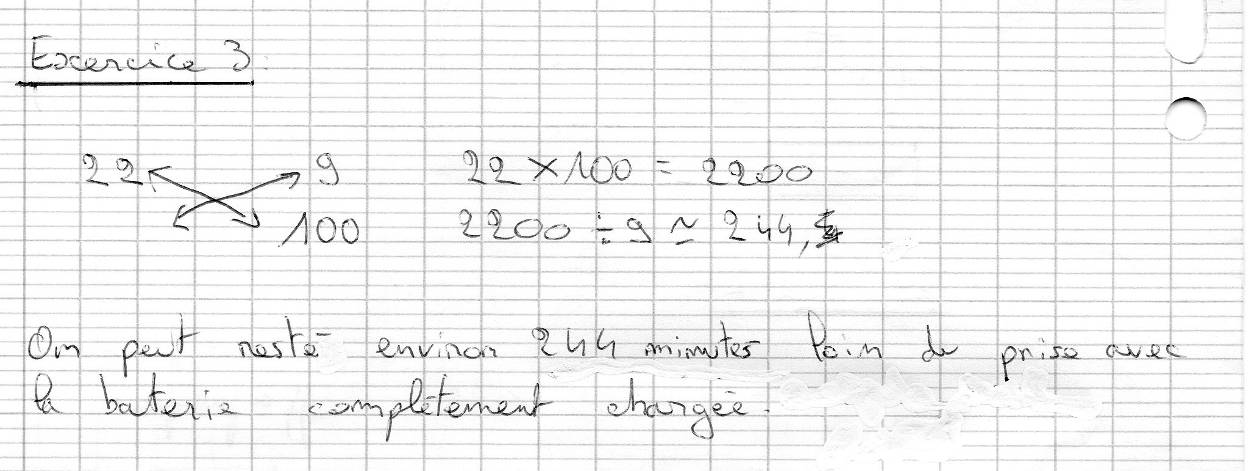 Exercice 3:
22 9 22 × 100 = 2200
100 2200 ÷ 9 ≃ 244,
On peut resté environ 244 minutes loin de prise avec
la baterie complètement chargée.